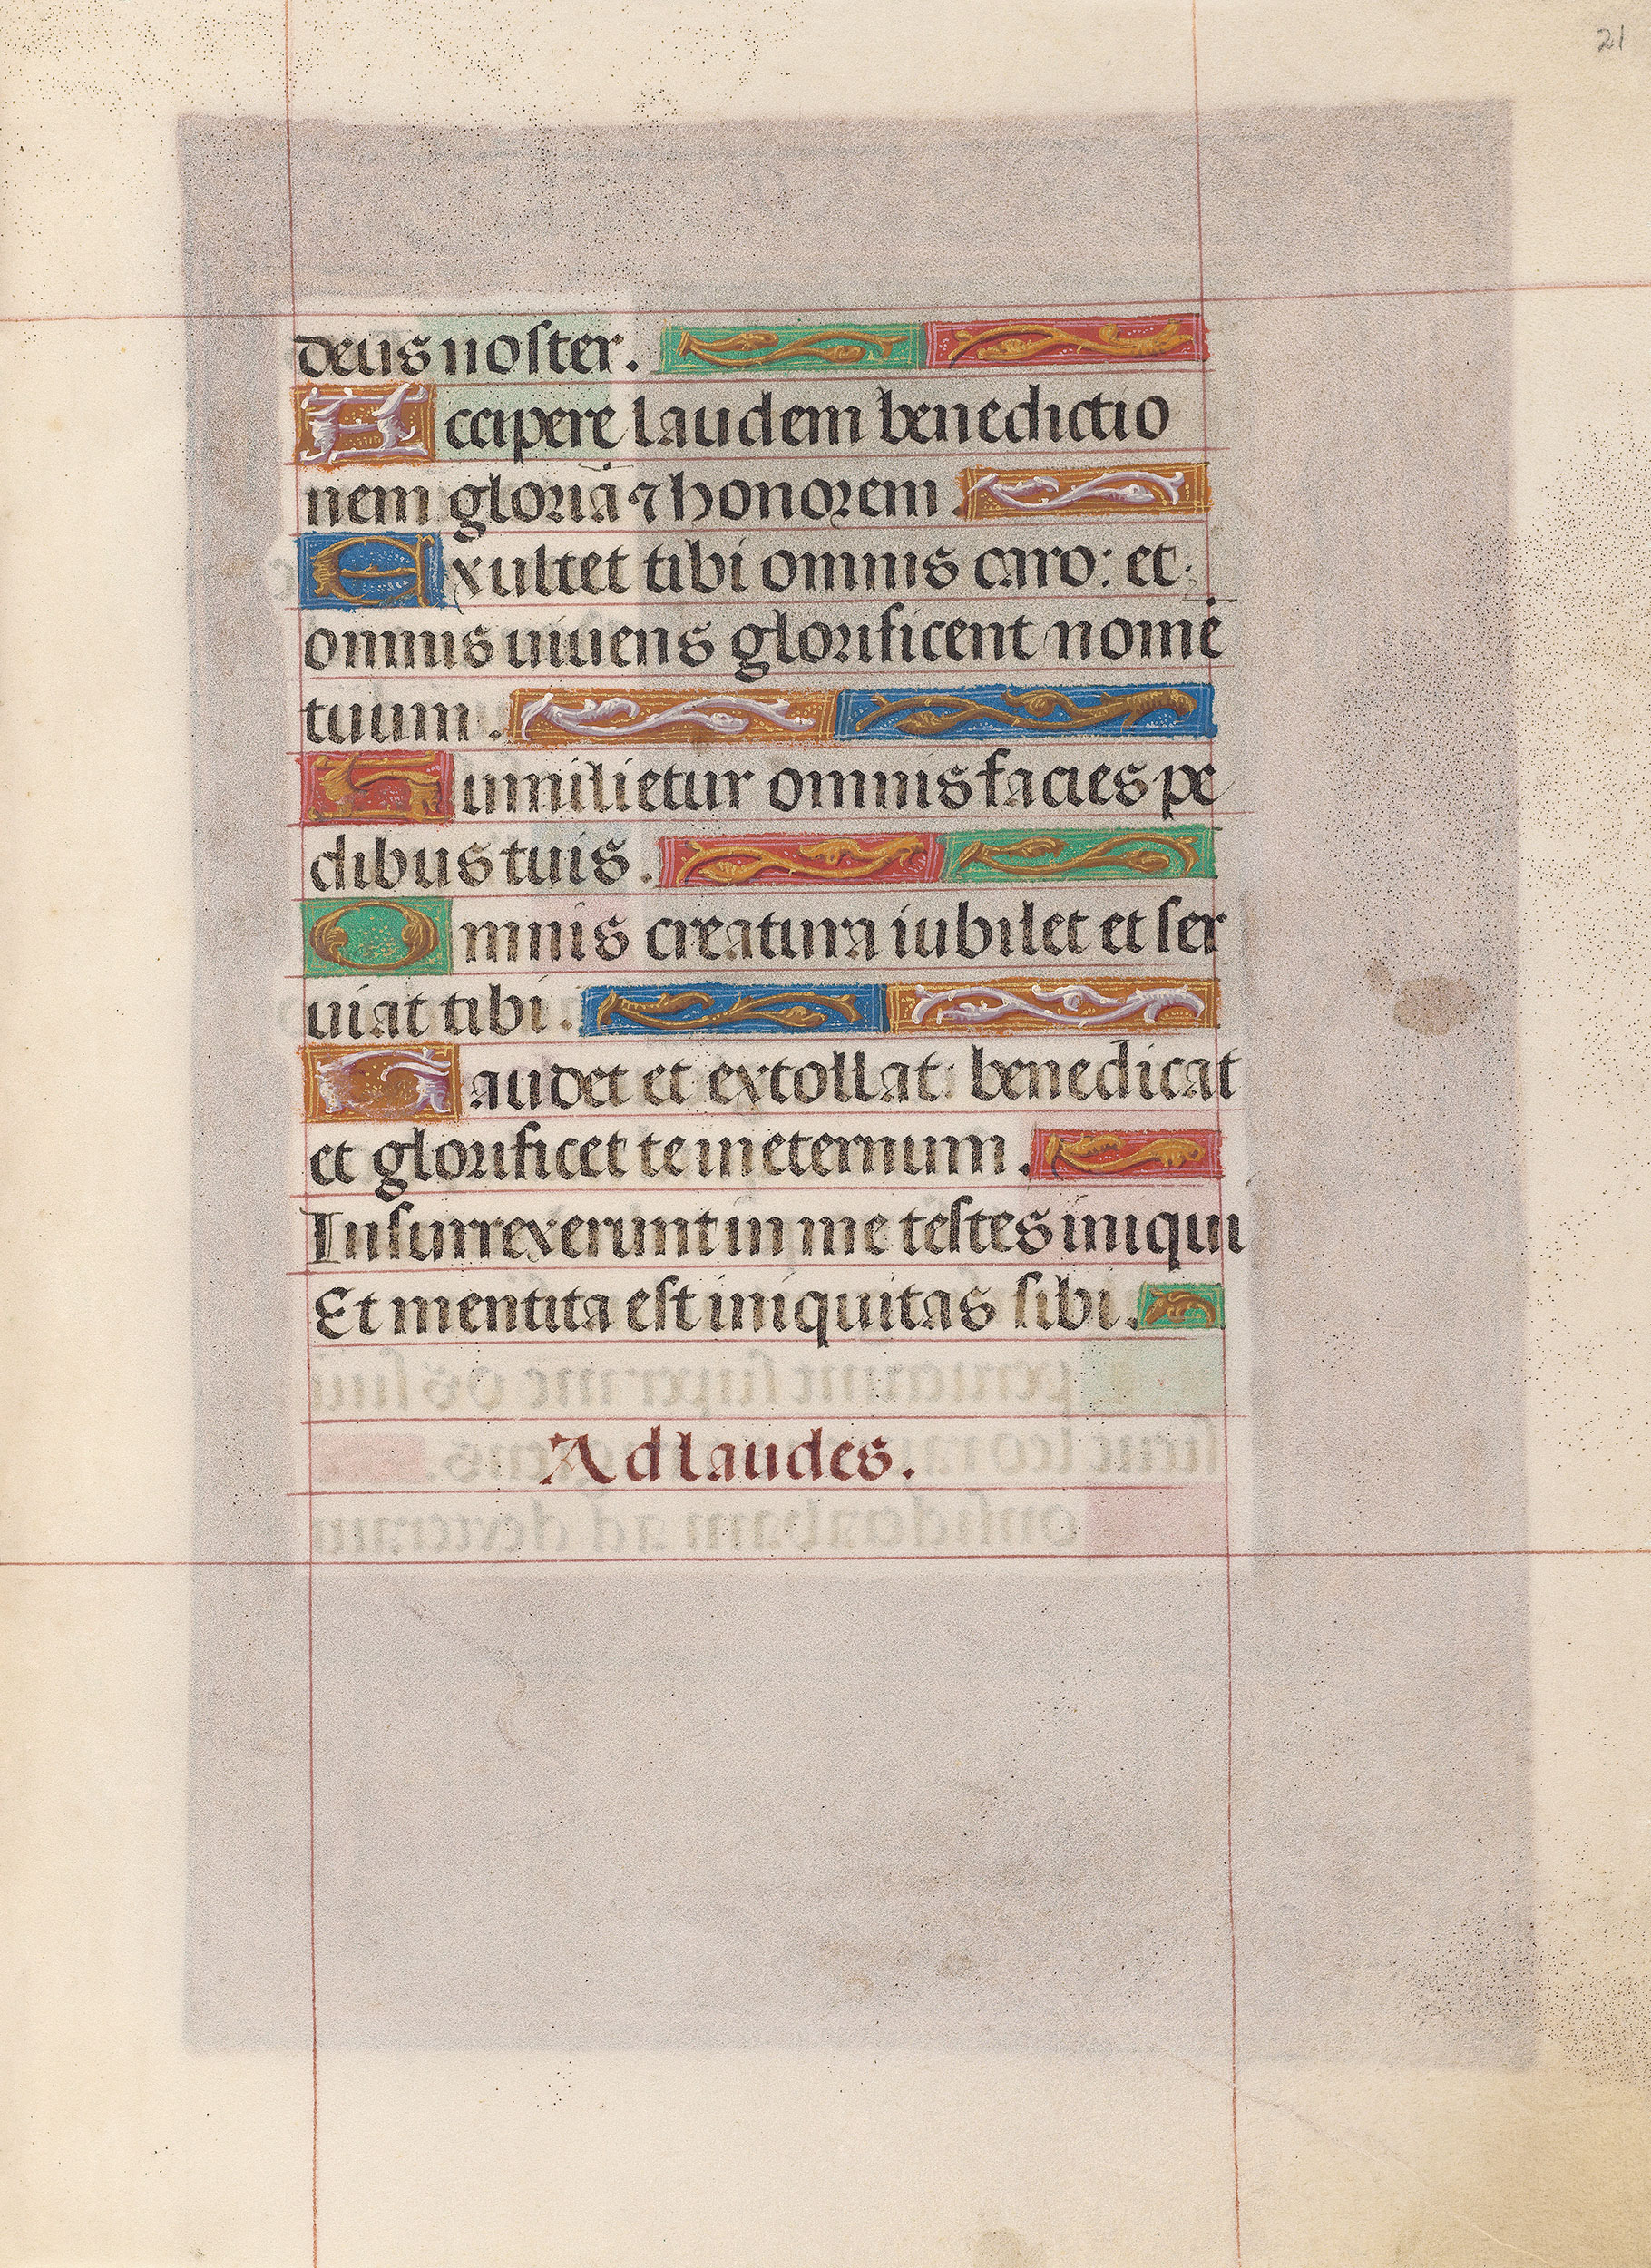 21
deus noster.
Accipere laudem benedictio
nem gloriā ⁊ honorem.
Exultet tibi omnis caro: et
omnis uiuens glorificent nomē
tuum.
Humilietur omnis facies pe
dibus tuis.
Omnis creatura iubilet et ser
uiat tibi.
Laudet et extollat: benedicat
et glorificet te in eternum.
Insurrexerunt in me testes iniqui
Et mentita est iniquitas sibi.
Ad laudes.